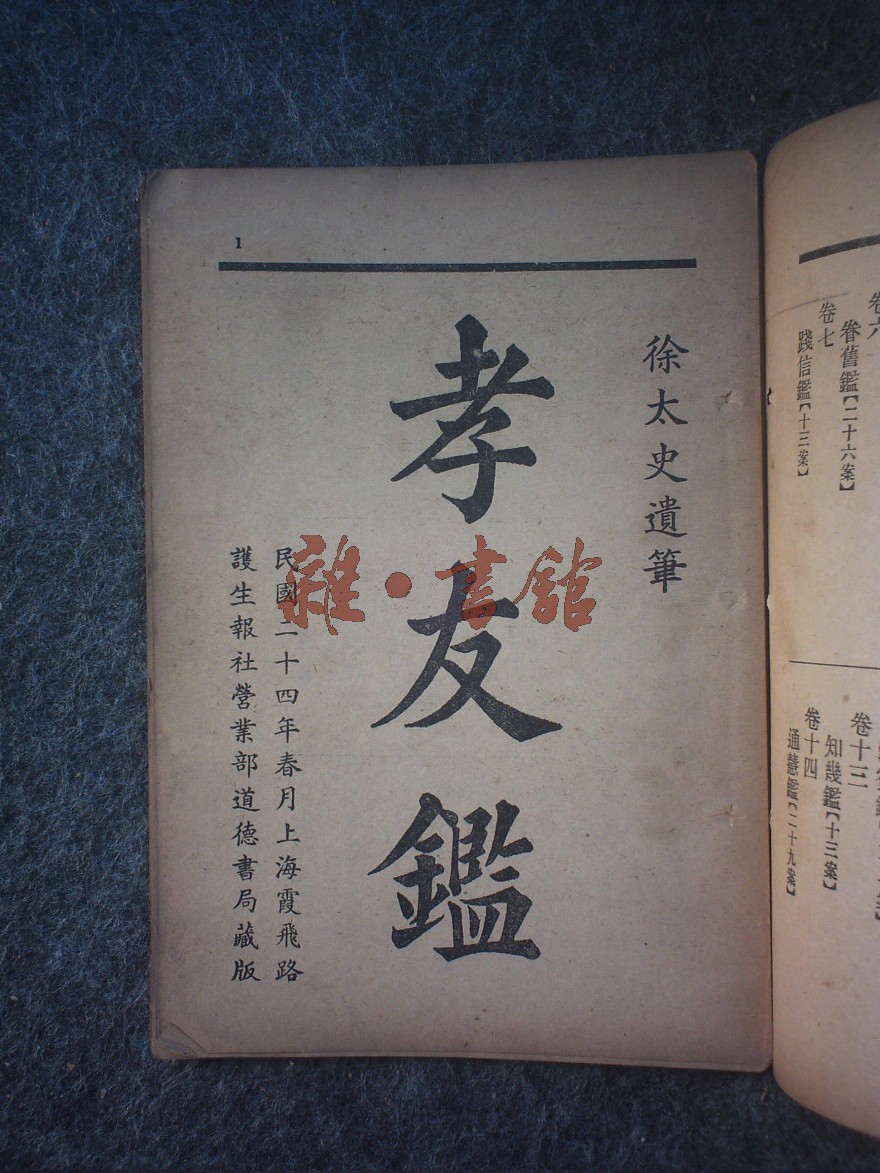 1
徐太史遺筆
孝友鑑
民國二十四年春月上海霞飛路
護生報社營業部道德書局藏版
雜·書館
卷六
眷舊鑑【二十六案】
卷七
踐信鑑【十三案】
卷十三
知幾鑑【十三案】
卷十四
通慧鑑【二十九案】